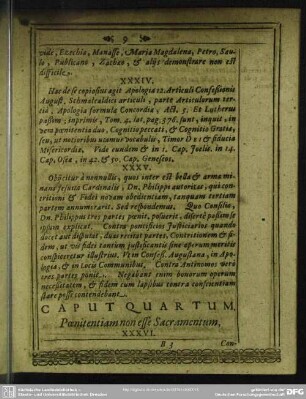 9
vide, Ezechia, Manasse, Maria Magdalena, Petro, Sau-
lo, Publicano, Zachæo, & alijs demonstrare non est
difficile.
XXXIV.
Hac de re copiosius agit Apologia 12. Articuli Confessionis
August. Schmalcaldici articuli, parte Articulorum ter-
tia, Apologia formulæ Concordiæ, Act. 5. Et Lutherus
passim; inprimis, Tom. 4. lat. pag. 578. sunt, inquit, in
vera pœnitentia duo, Cognitio peccati, & Cognitio Gratiæ;
seu, ut notioribus utamur vocabulis, Timor Dei & fiducia
Misericordiæ. Vide eundem & in 2. Cap. Joelis. in 14.
Cap. Oseæ, in 42. & 50. Cap. Geneseos.
XXXV.
Objicitur à nonnullis, quos inter est bella & arma mi-
nans
Cardinalis, Dn. Philippi autoritas, qui con-
tritioni & Fidei novam obedientiam, tanquam tertiam
partem annumerarit. Sed respondemus. Quo Consilio,
Dn. Philippus tres partes pœnit. posuerit, disertè passim se
ipsum explicat. Contra pontificios Justiciarios quando
docet aut disputat, duas tenet partes, Contritionem & fi-
dem, ut vis fidei tantum justificantis sine operum meritis
conspiceretur illustrius. Ut in Confess. Augustana, in Apo-
logia, & in Locis Communibus. Contra Antinomos verò
tres partes ponit. Negabant enim bonorum operum
necessitatem, & fidem cum lapsibus contra conscientiam
stare posse contendebant.
CAPUT QUARTUM,
Pœnitentiam non esse Sacramentum,
XXXVI.
B 3
Con-